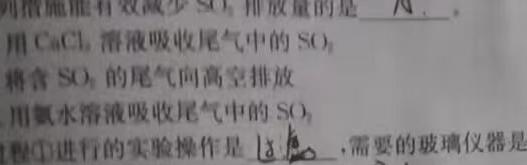 列措施能有效减少 SO₂ 排放量的是
用 CaCl₂ 溶液吸收尾气中的 SO₂
将含 SO₂ 的尾气向高空排放
用氨水溶液吸收尾气中的 SO₂
过程①进行的实验操作是 ,需要的玻璃仪器是